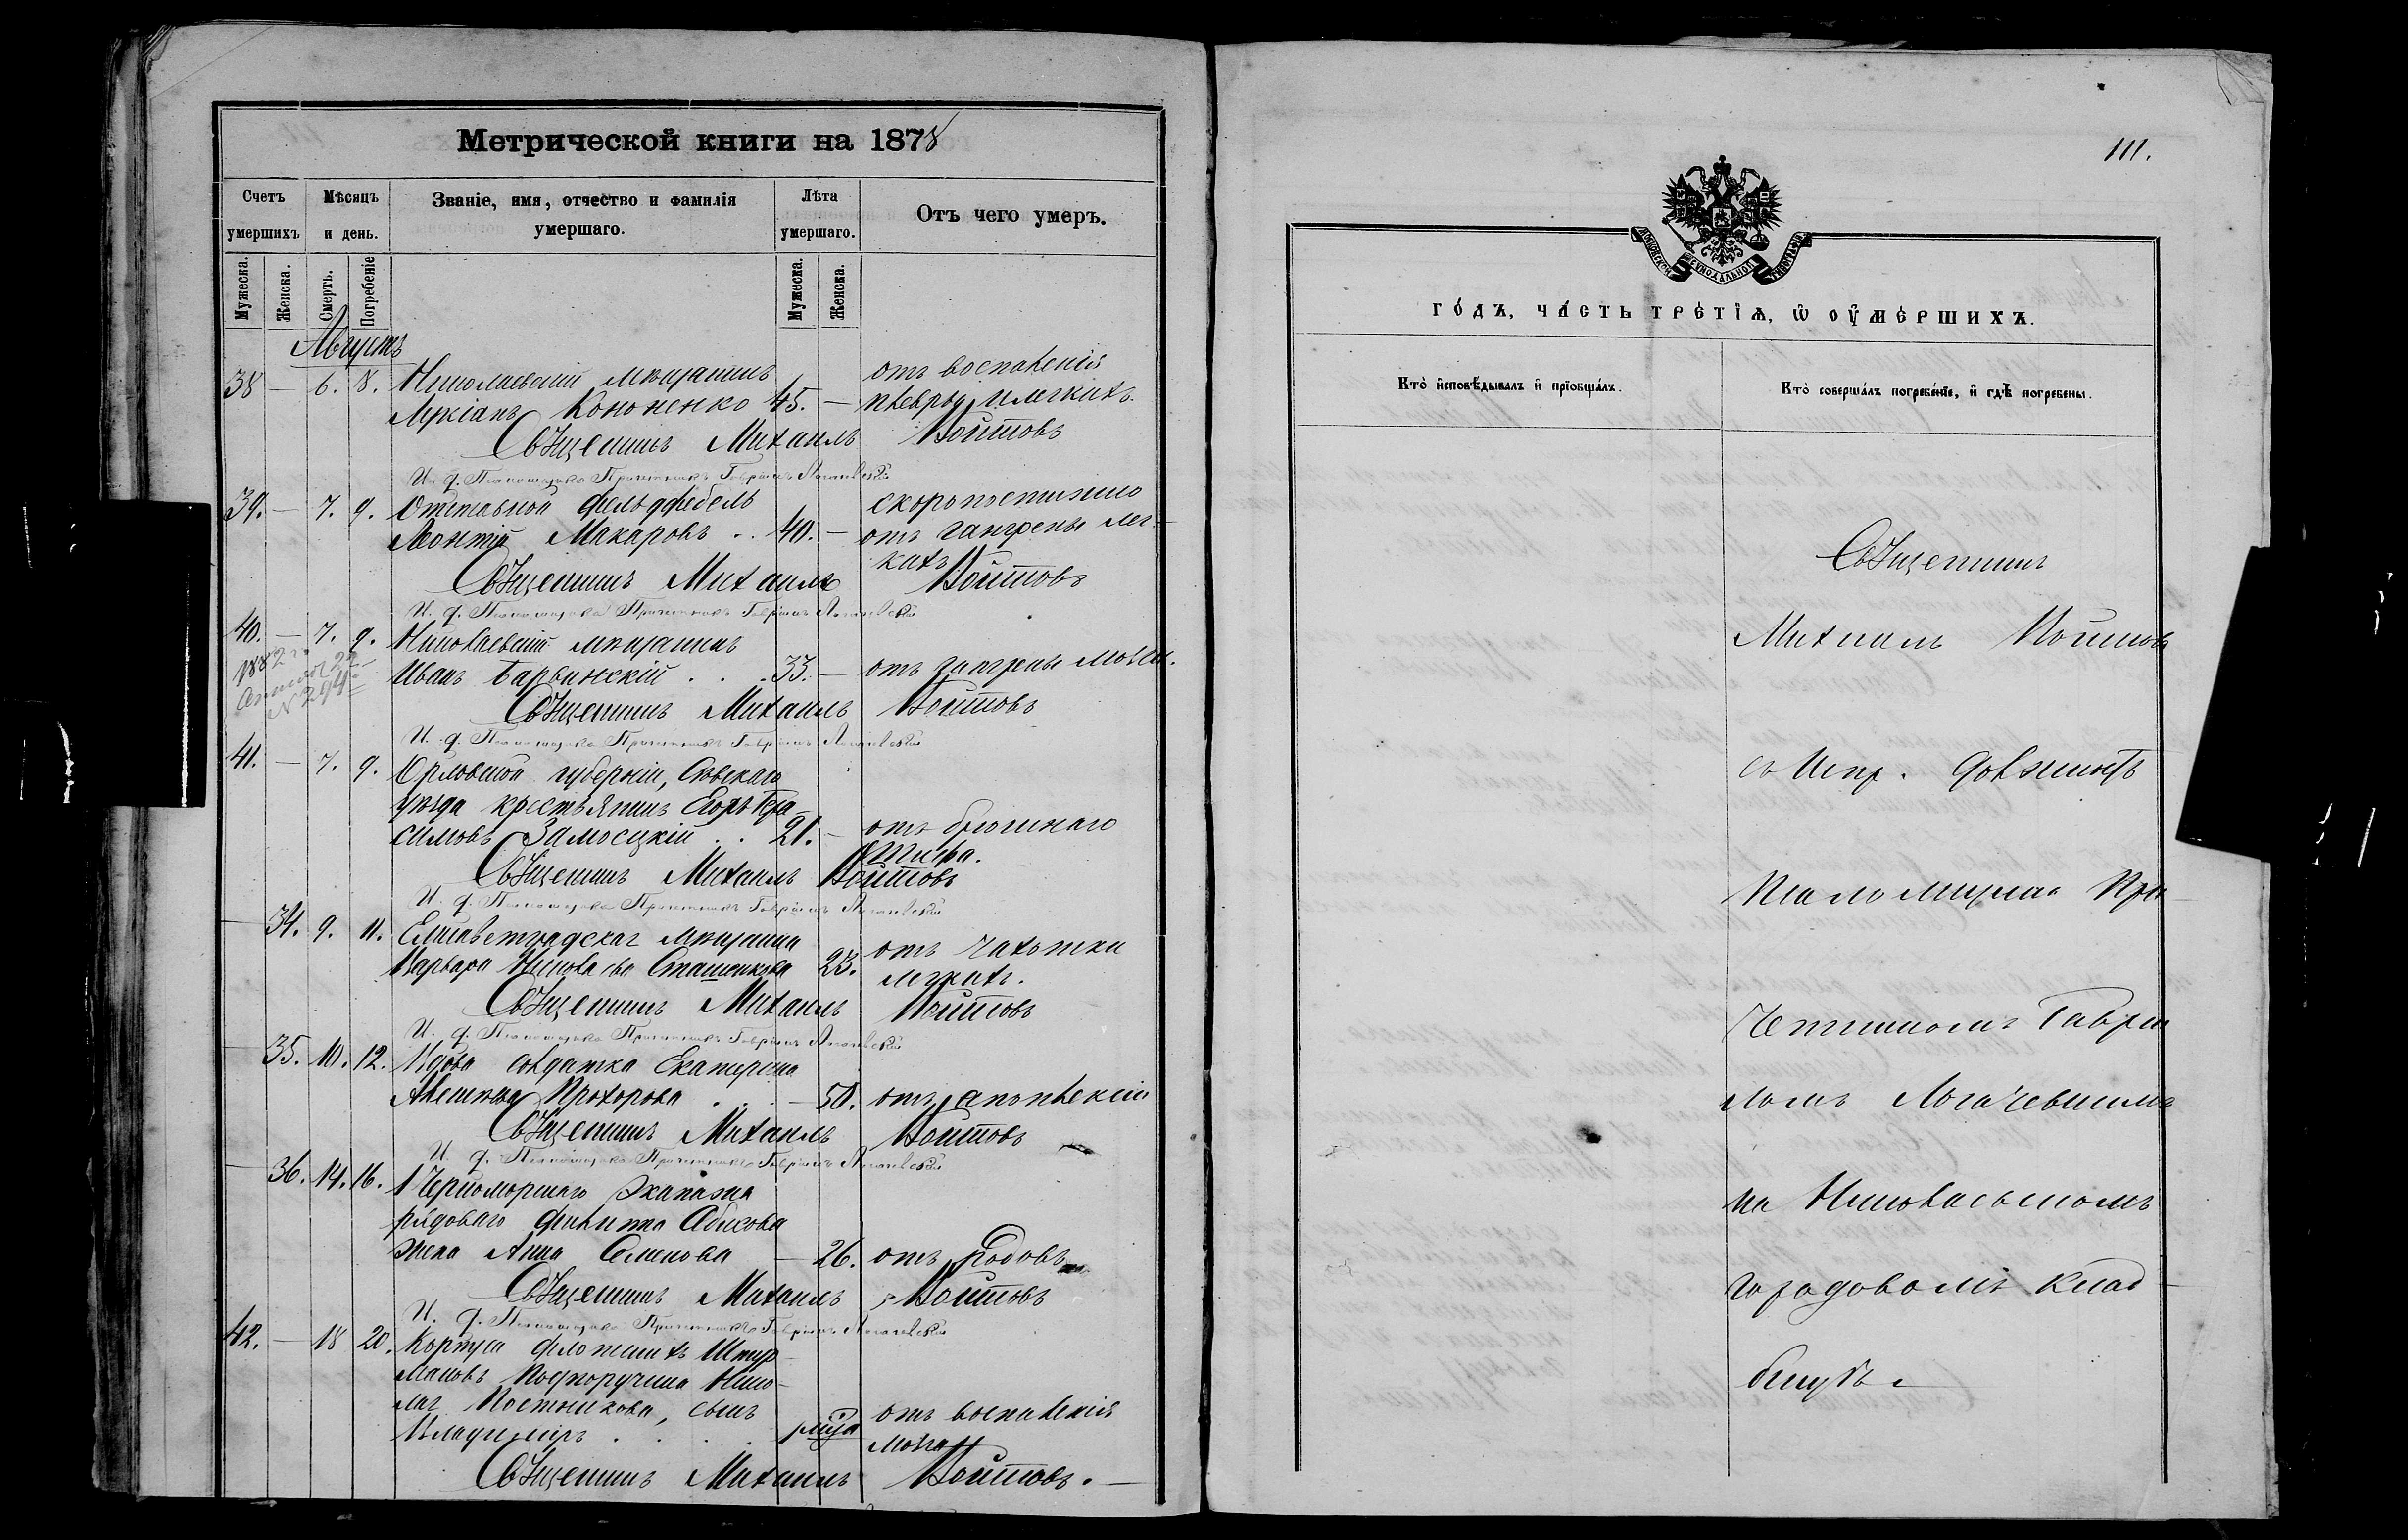 Метрической книги на 1878
Счетъ умершихъ
Мѣсяцъ и день.
Званіе, имя, отчество и фамилія умершаго.
Лѣта умершаго.
Отъ чего умеръ.
Мужеска. Женска. Смерть. Погребеніе Мужеска. Женска.
Августъ
38 — 6. 8. Николаевскій мѣщанинъ
Лукіанъ Кононенко 45. —
отъ воспаленія
плевры и легкихъ.
Священникъ Михаилъ Войтовъ
И. д. Псаломщика Причетникъ Гавріилъ Логачевскій
39. — 7. 9. Отставной фельдфебель
Леонтій Макаровъ .. 40. —
скоропостижно
отъ гангрены лег-
кихъ
Священникъ Михаилъ Войтовъ
И. д. Псаломщика Причетникъ Гавріилъ Логачевскій
40. — 7. 9. Николаевскій мѣщанинъ
Иванъ Барвинскій . . . 33. — отъ гангрены мочи.
1882 г.
N 294
Священникъ Михаилъ Войтовъ
И. д. Псаломщика Причетникъ Гавріилъ Логачевскій
41. — 7. 9. Орловской губерніи, Сѣвскаго
уѣзда крестьянинъ Егоръ Гера-
симовъ Замосцкій . . 21. — отъ брюшнаго
тифа.
Священникъ Михаилъ Войтовъ
И. д. Псаломщика Причетникъ Гавріилъ Логачевскій
— 34. 9. 11. Елисаветградская мѣщанка
Варвара Николаева Сташенкова 23.
отъ чахотки
легкихъ.
Священникъ Михаилъ Войтовъ
И. д. Псаломщика Причетникъ Гавріилъ Логачевскій
— 35. 10. 12. Вдова солдатка Екатерина
Прохорова . . . — 50. отъ апоплексіи
Священникъ Михаилъ Войтовъ
И. д. Псаломщика Причетникъ Гавріилъ Логачевскій
— 36. 14. 16. 1 Черноморскаго Экипажа
рядоваго Филипа Абикова
жена Анна Семенова — 26. отъ родовъ
Священникъ Михаилъ Войтовъ
И. д. Псаломщика Причетникъ Гавріилъ Логачевскій
42. — 18 20. Корпуса флотскихъ Штур-
мановъ Подпоручика Нико-
лая Постникова, сынъ
Владиміръ . . . .
отъ воспаленія
мозга
Священникъ Михаилъ Войтовъ. —
111.
МОСКОВСКОЙ СУНОДАЛЬНОЙ ТИПОГРАФІИ
го́дъ, ча́сть тре́тїѧ, ѡ҆ ᲂу҆ме́ршихъ.
Кто̀ и҆сповѣ́дывалъ и҆ прїобща́лъ.
Кто̀ соверша́лъ погребе́нїе, и҆ гдѣ̀ погребены̀.
Священникъ
Михаилъ Войтовъ
съ Испр. должность
Псаломщика При-
четникомъ Гаврі-
ломъ Логачевскимъ
на Николаевскомъ
городовомъ клад-
бищѣ.